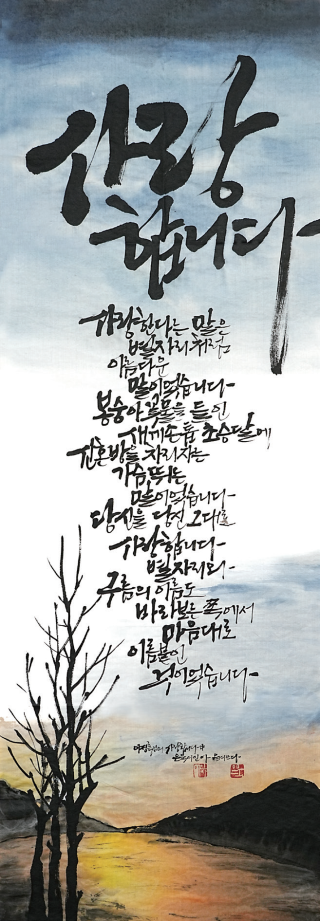 사랑
합니다
사랑한다는 말은
별자리처럼
아름다운
말이었습니다
봉숭아 꽃물을 들인
새끼손톱 초승달에
신혼방을 차리자는
가슴 뛰는
말이었습니다
당신을 당신 그대로
사랑합니다
별자리의
구름의 이름도
바라보는 쪽에서
마음대로
이름붙인
것이었습니다
사랑합니다 中